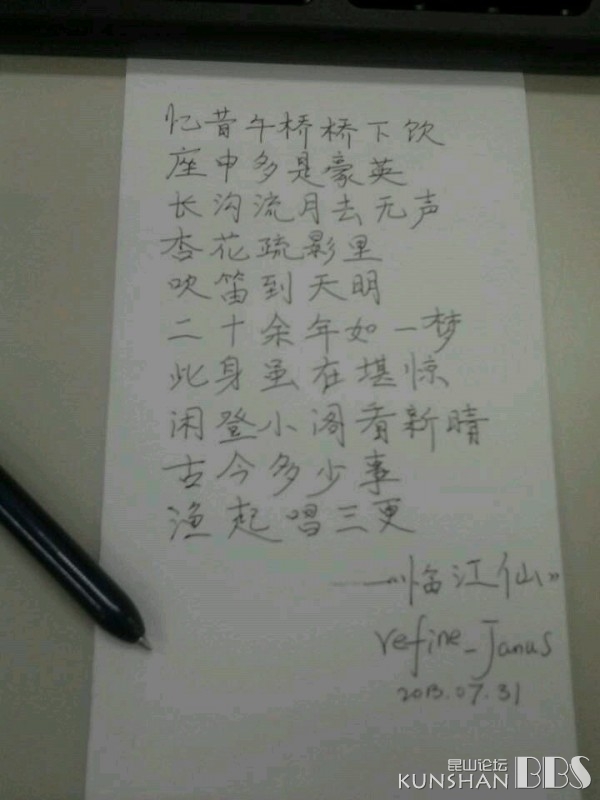 忆昔午桥桥下饮
座中多是豪英
长沟流月去无声
杏花疏影里
吹笛到天明
二十余年如一梦
此身虽在堪惊
闲登小阁看新晴
古今多少事
渔起唱三更
——《临江仙》
refine_Janus
2013.07.31
昆山论坛
KUNSHAN BBS